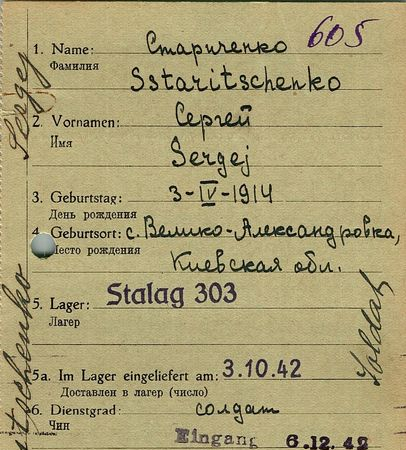 605
1. Name: Стариченко
Фамилия
Sstaritschenko
2. Vornamen: Сергей
Имя
Sergej
3. Geburtstag: 3-IV-1914
День рождения
4. Geburtsort: с. Велико-Александровка,
Место рождения
Киевская обл.
5. Lager: Stalag 303
Лагер
5a. Im Lager eingeliefert am: 3.10.42
Доставлен в лагер (число)
6. Dienstgrad: солдат
Чин
Eingang 6.12.42
Sergej
Soldat